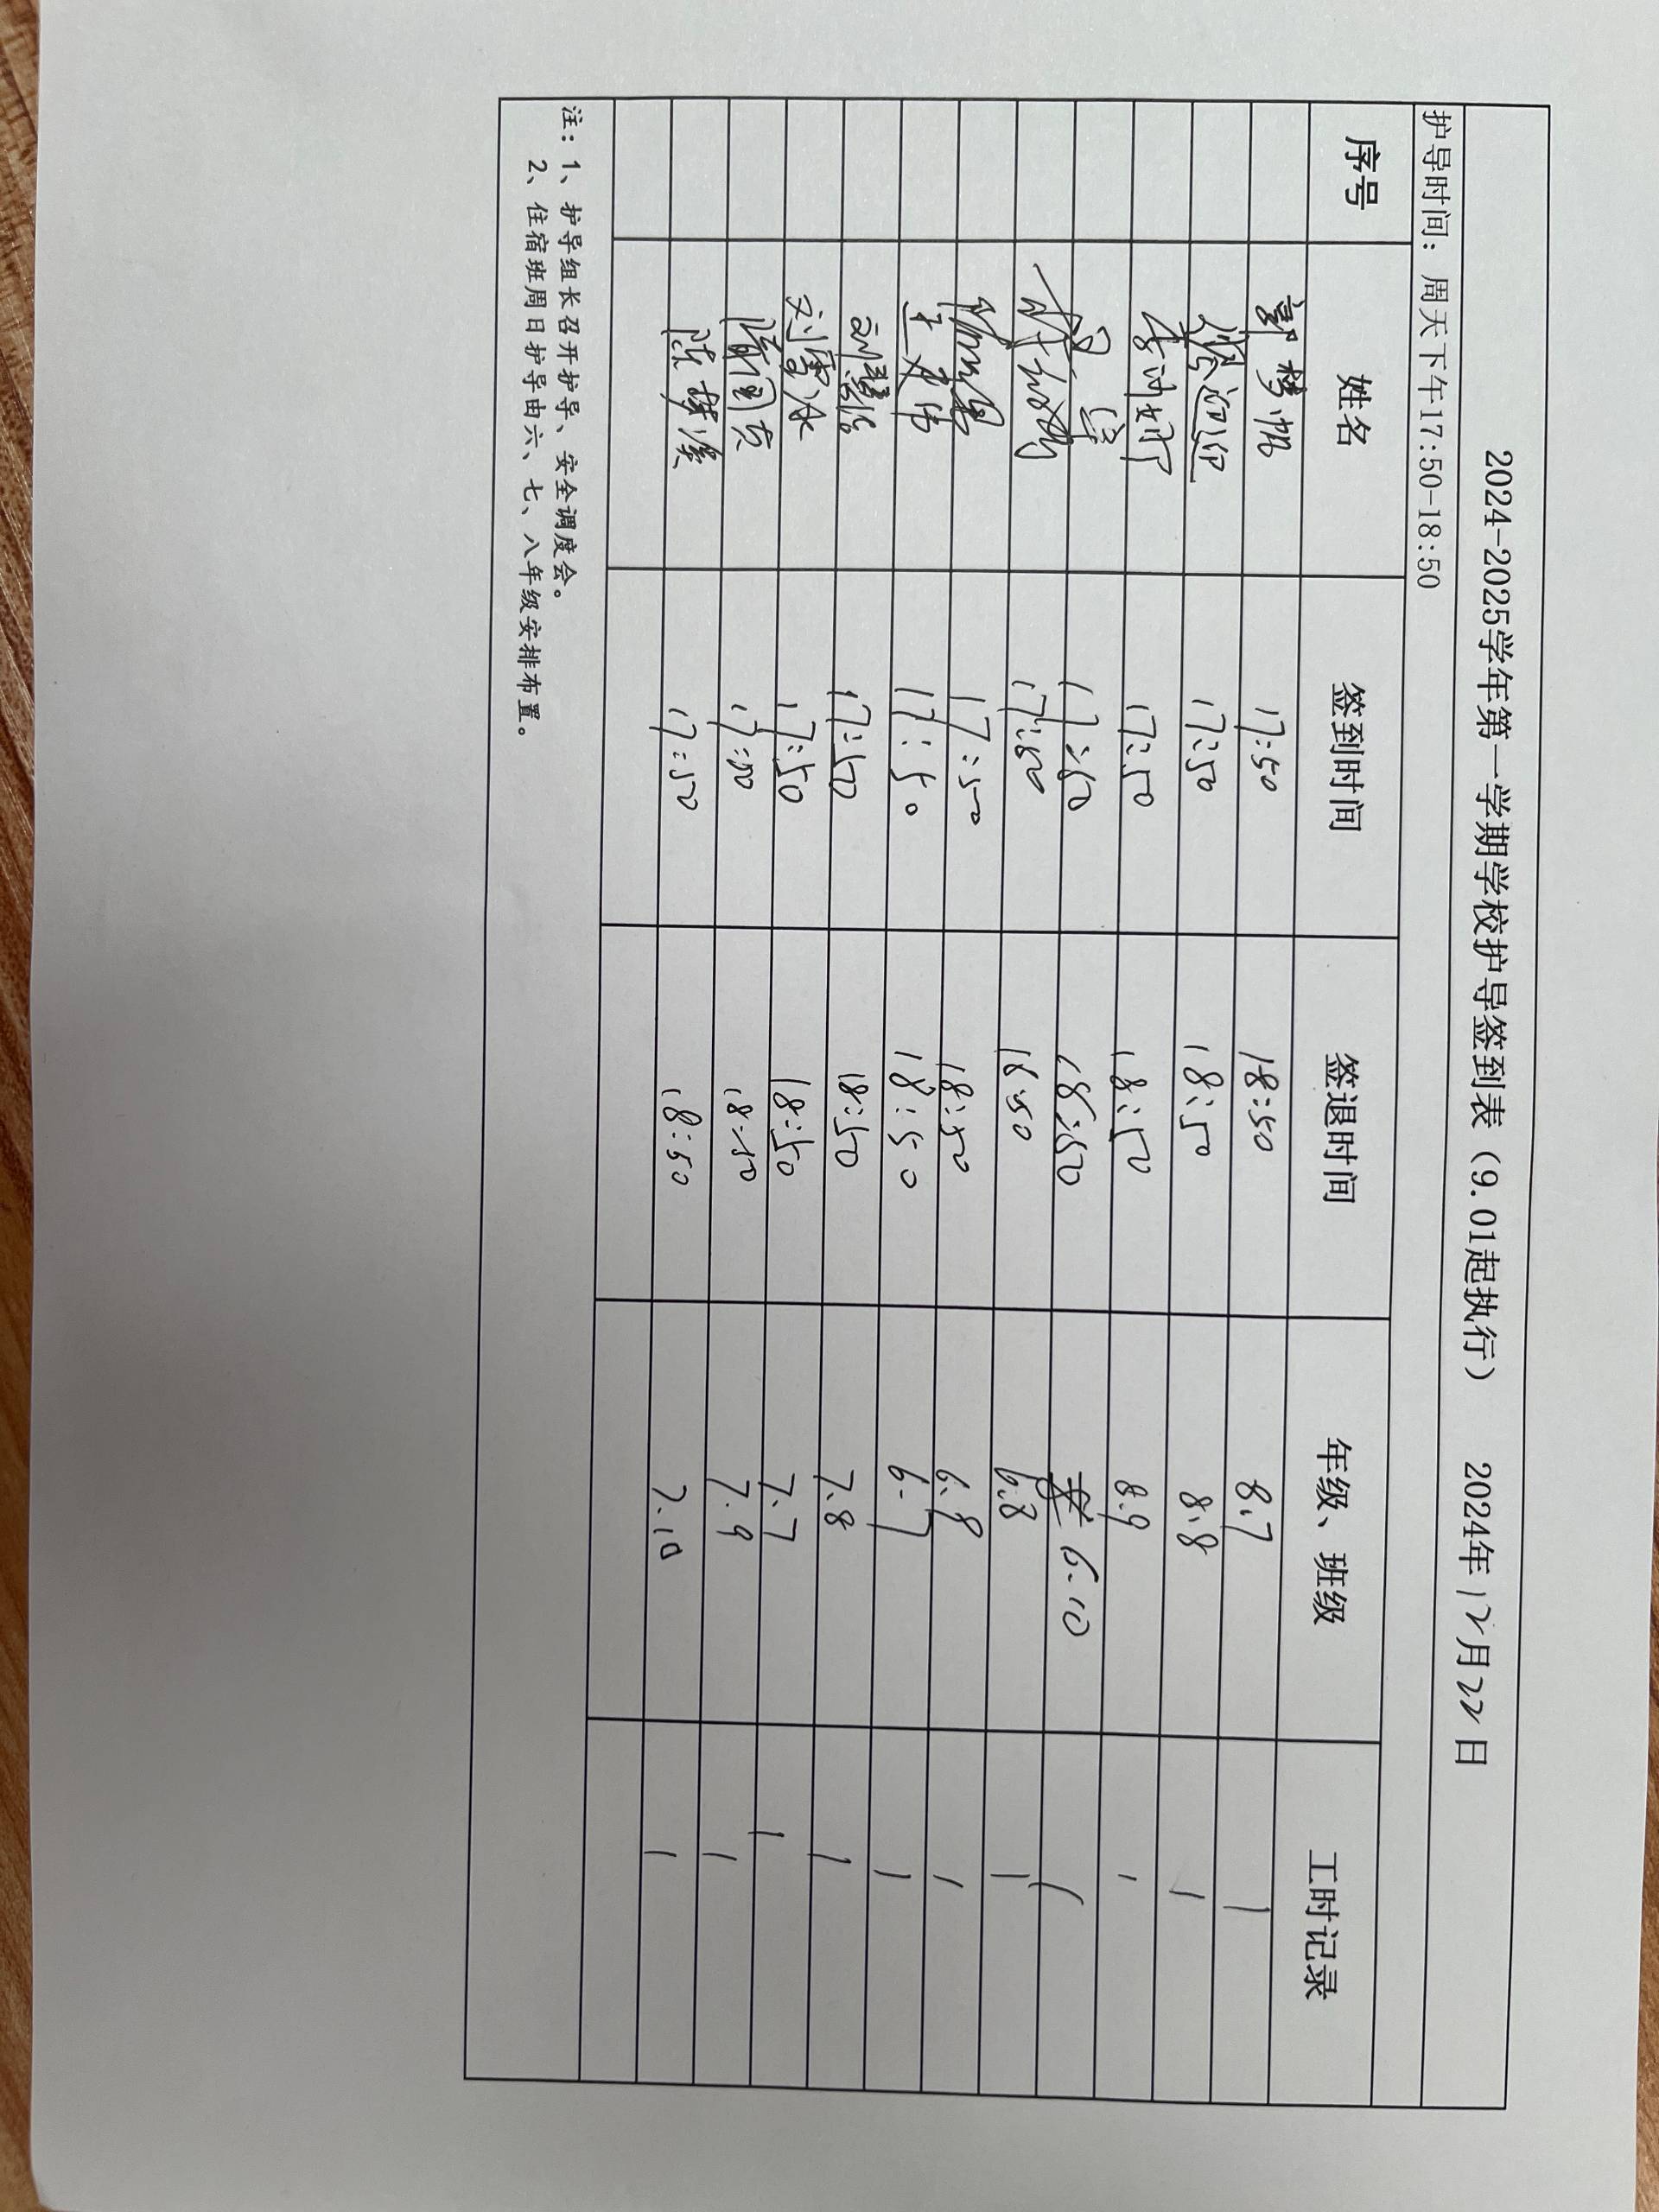 2024-2025学年第一学期学校护导签到表（9.01起执行） 2024年12月22日
护导时间：周天下午17:50-18:50
序号 姓名 签到时间 签退时间 年级、班级 工时记录
郭梦帆 17:50 18:50 8.7 1
17:50 18:50 8.8 1
17:50 18:50 8.9 1
17:50 18:50 6.10 1
17:50 18:50 6.8 1
17:50 18:50 6.8 1
17:50 18:50 6.7 1
17:50 18:50 7.8 1
17:50 18:50 7.7 1
18:50 7.9 1
陈 17:50 18:50 7.10 1
注：1、护导组长召开护导、安全调度会。
2、住宿班周日护导由六、七、八年级安排布置。